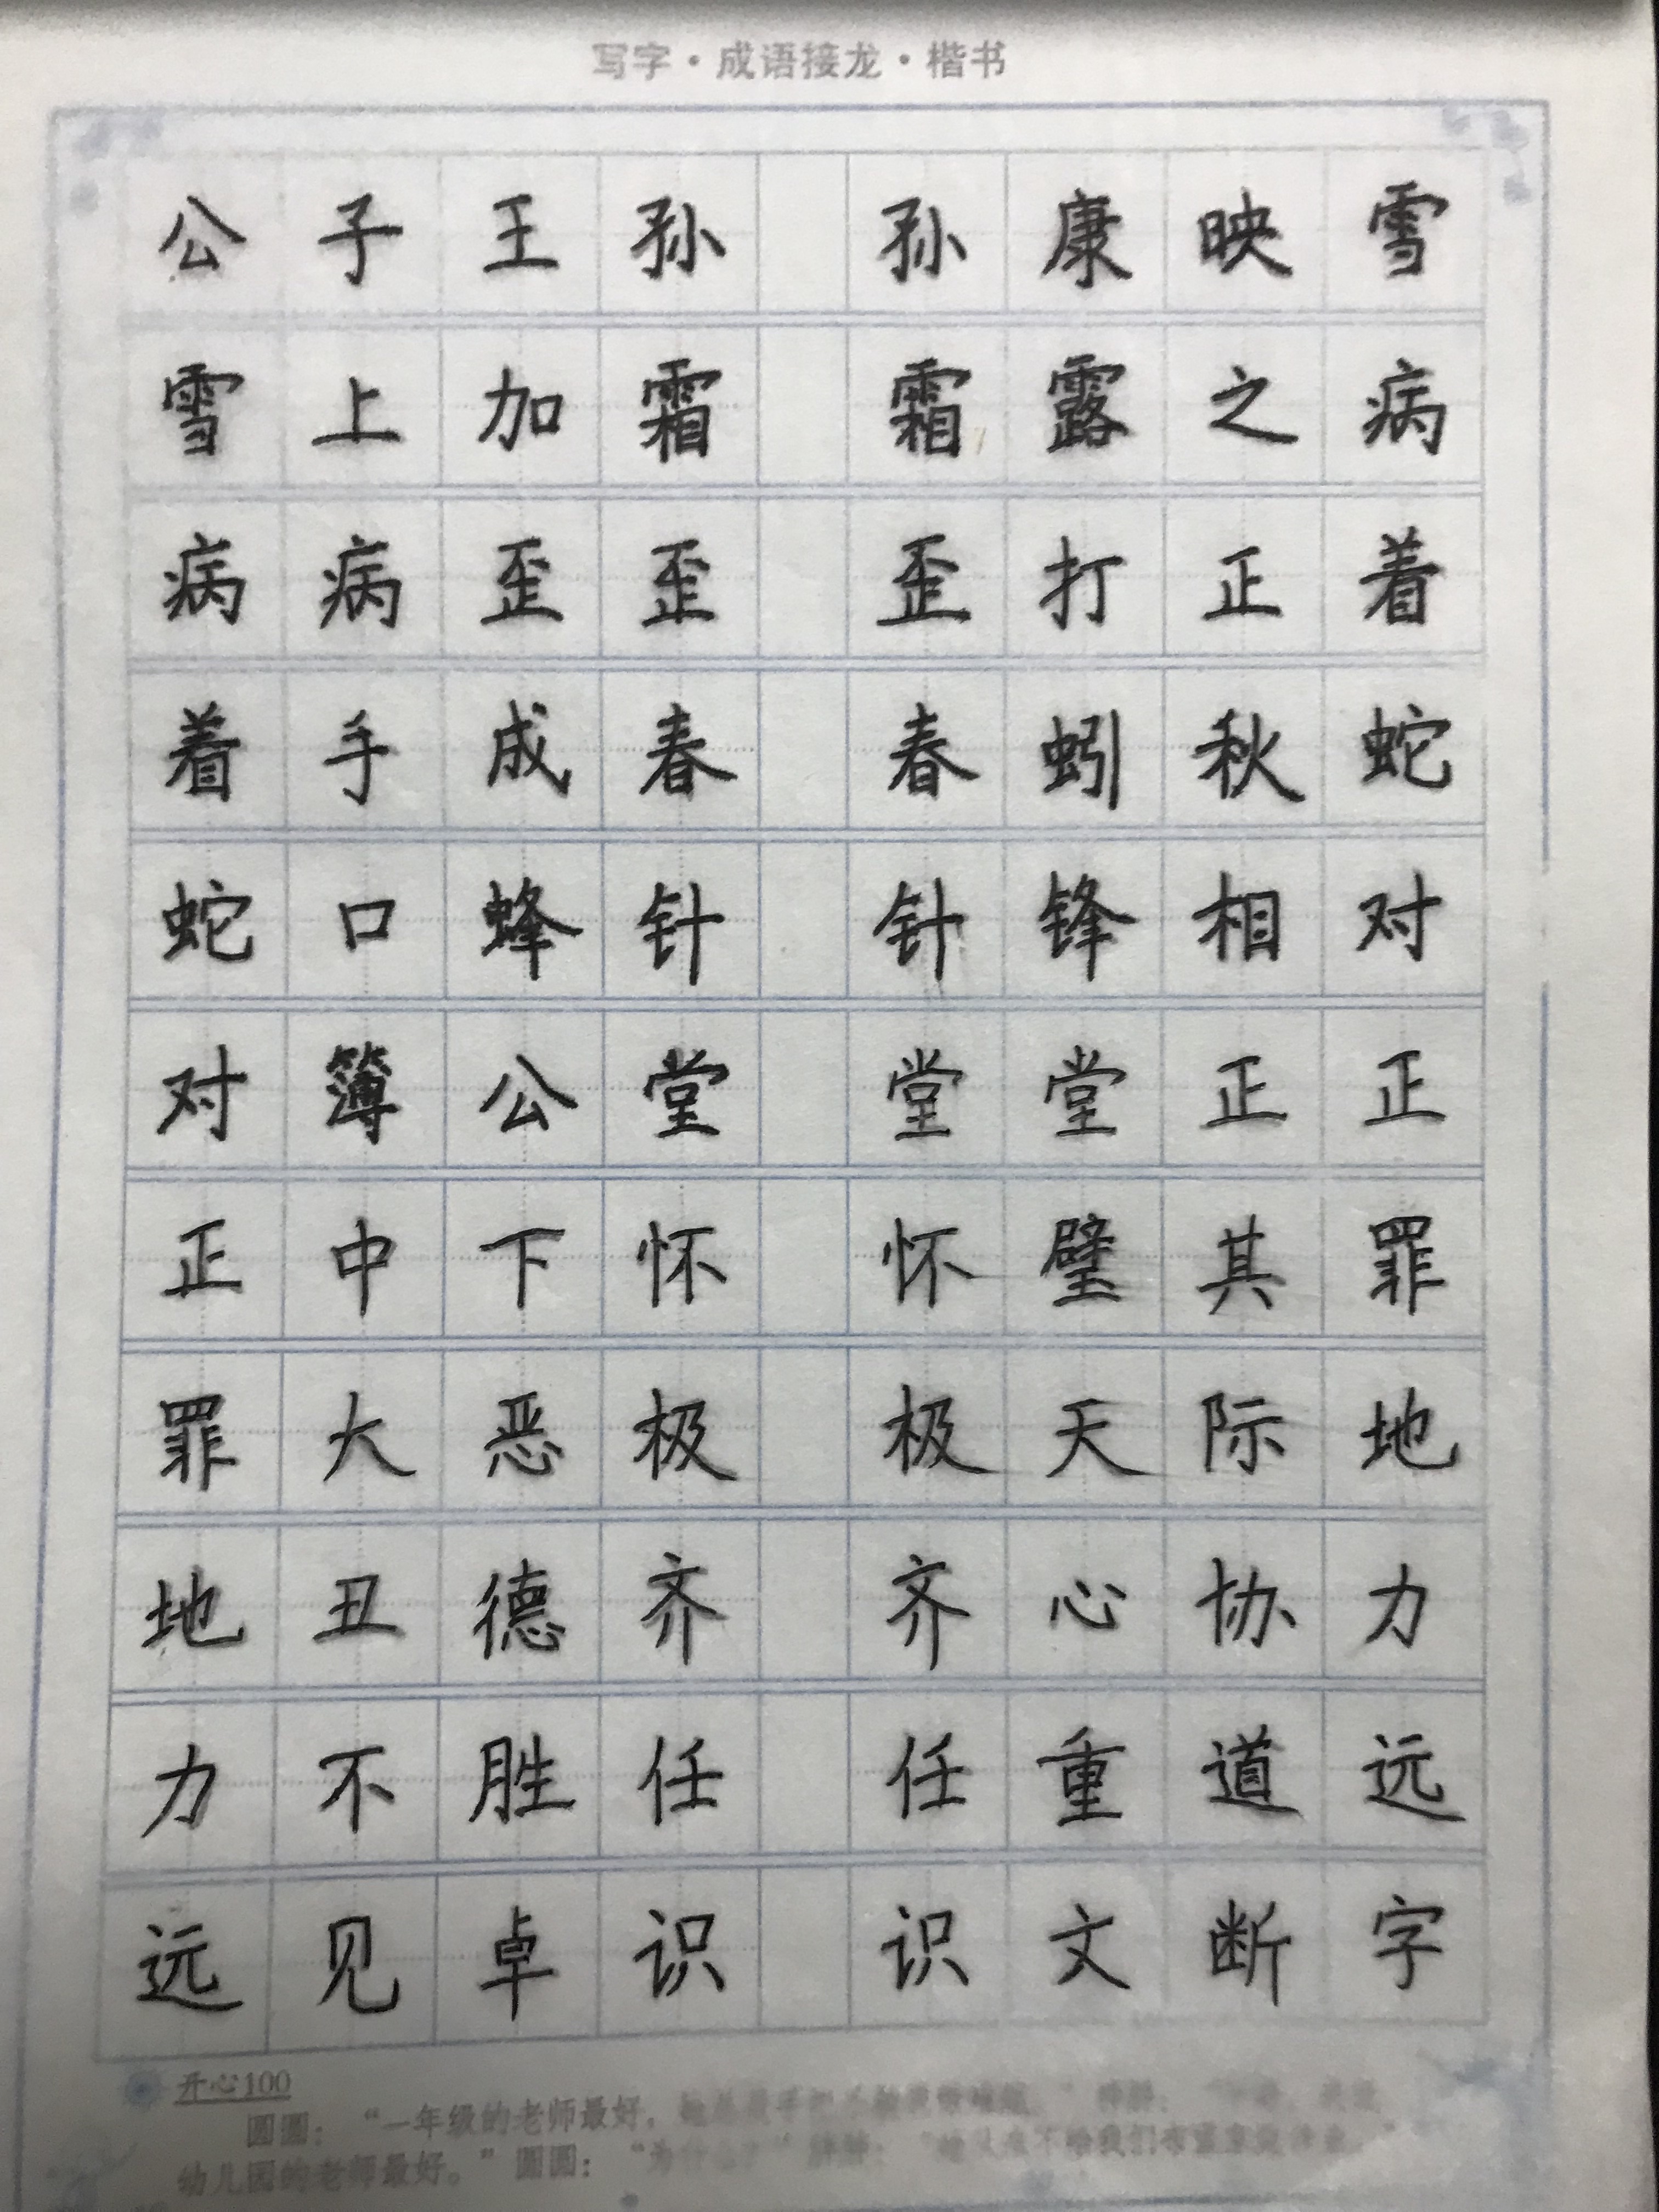 写字·成语接龙·楷书
公子王孙 孙康映雪
雪上加霜 霜露之病
病病歪歪 歪打正着
着手成春 春蚓秋蛇
蛇口蜂针 针锋相对
对簿公堂 堂堂正正
正中下怀 怀璧其罪
罪大恶极 极天际地
地丑德齐 齐心协力
力不胜任 任重道远
远见卓识 识文断字
开心100
圆圆：“一年级的老师最好，
幼儿园的老师最好。”圆圆：“为什么？”